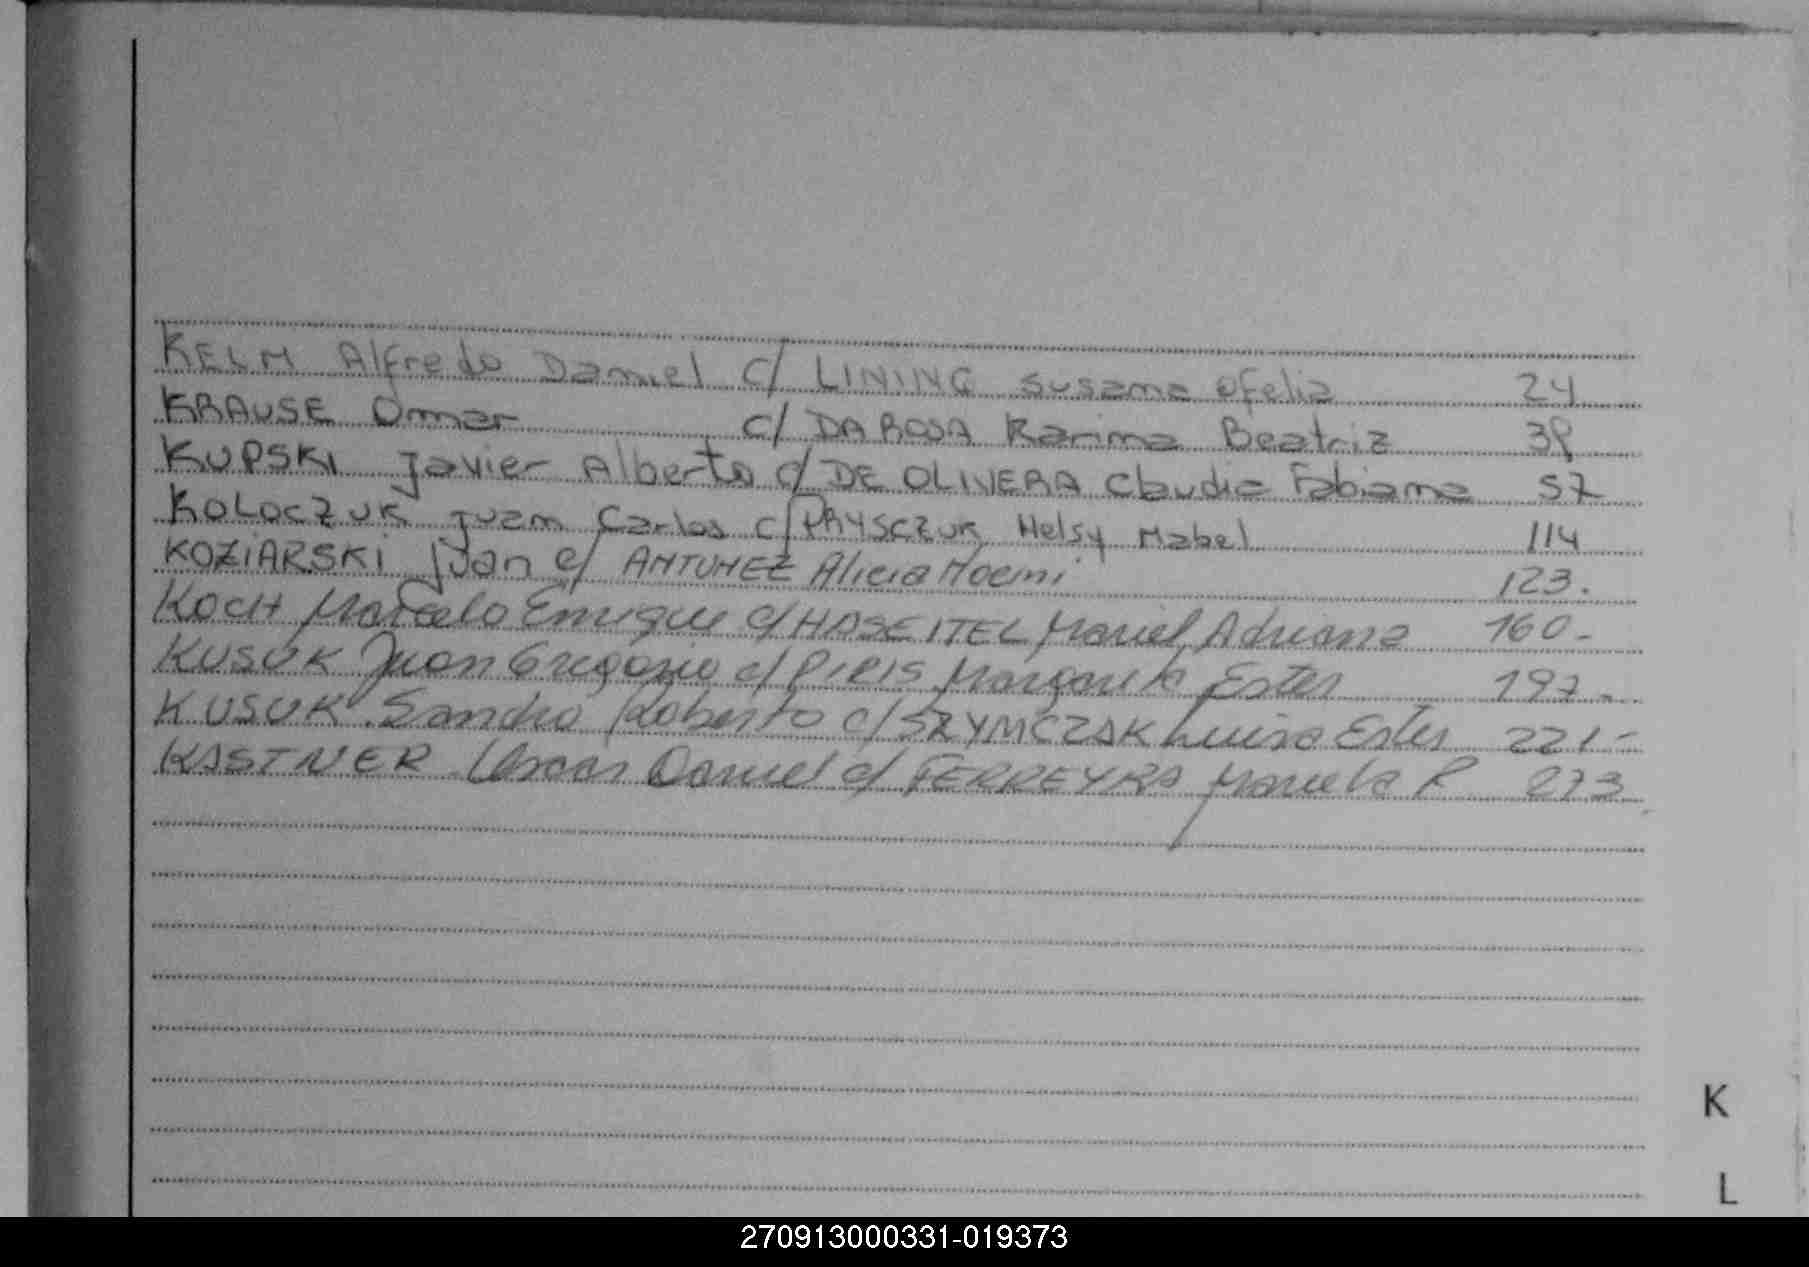 KELM Alfredo Daniel c/ LINING Susana Ofelia 24
KRAUSE Omar c/ DA ROSA Karima Beatriz 39
KUPSKI Javier Alberto c/ DE OLIVERA Claudia Fabiana 57
KOLOCZUK Juan Carlos c/ PRYSCZUK Helsy Mabel 114
KOZIARSKI Juan c/ ANTUNEZ Alicia Noemi 123.
KOCH Marcelo Enrique c/ HASEITEL Mariel Adriana 160-
KUSUK Juan Gregorio c/ PIRIS Margarita Ester 197-
KUSUK Sandro Roberto c/ SZYMCZAK Luisa Ester 221-
KASTNER Oscar Daniel c/ FERREYRA Mariela R 273
K
L
270913000331-019373